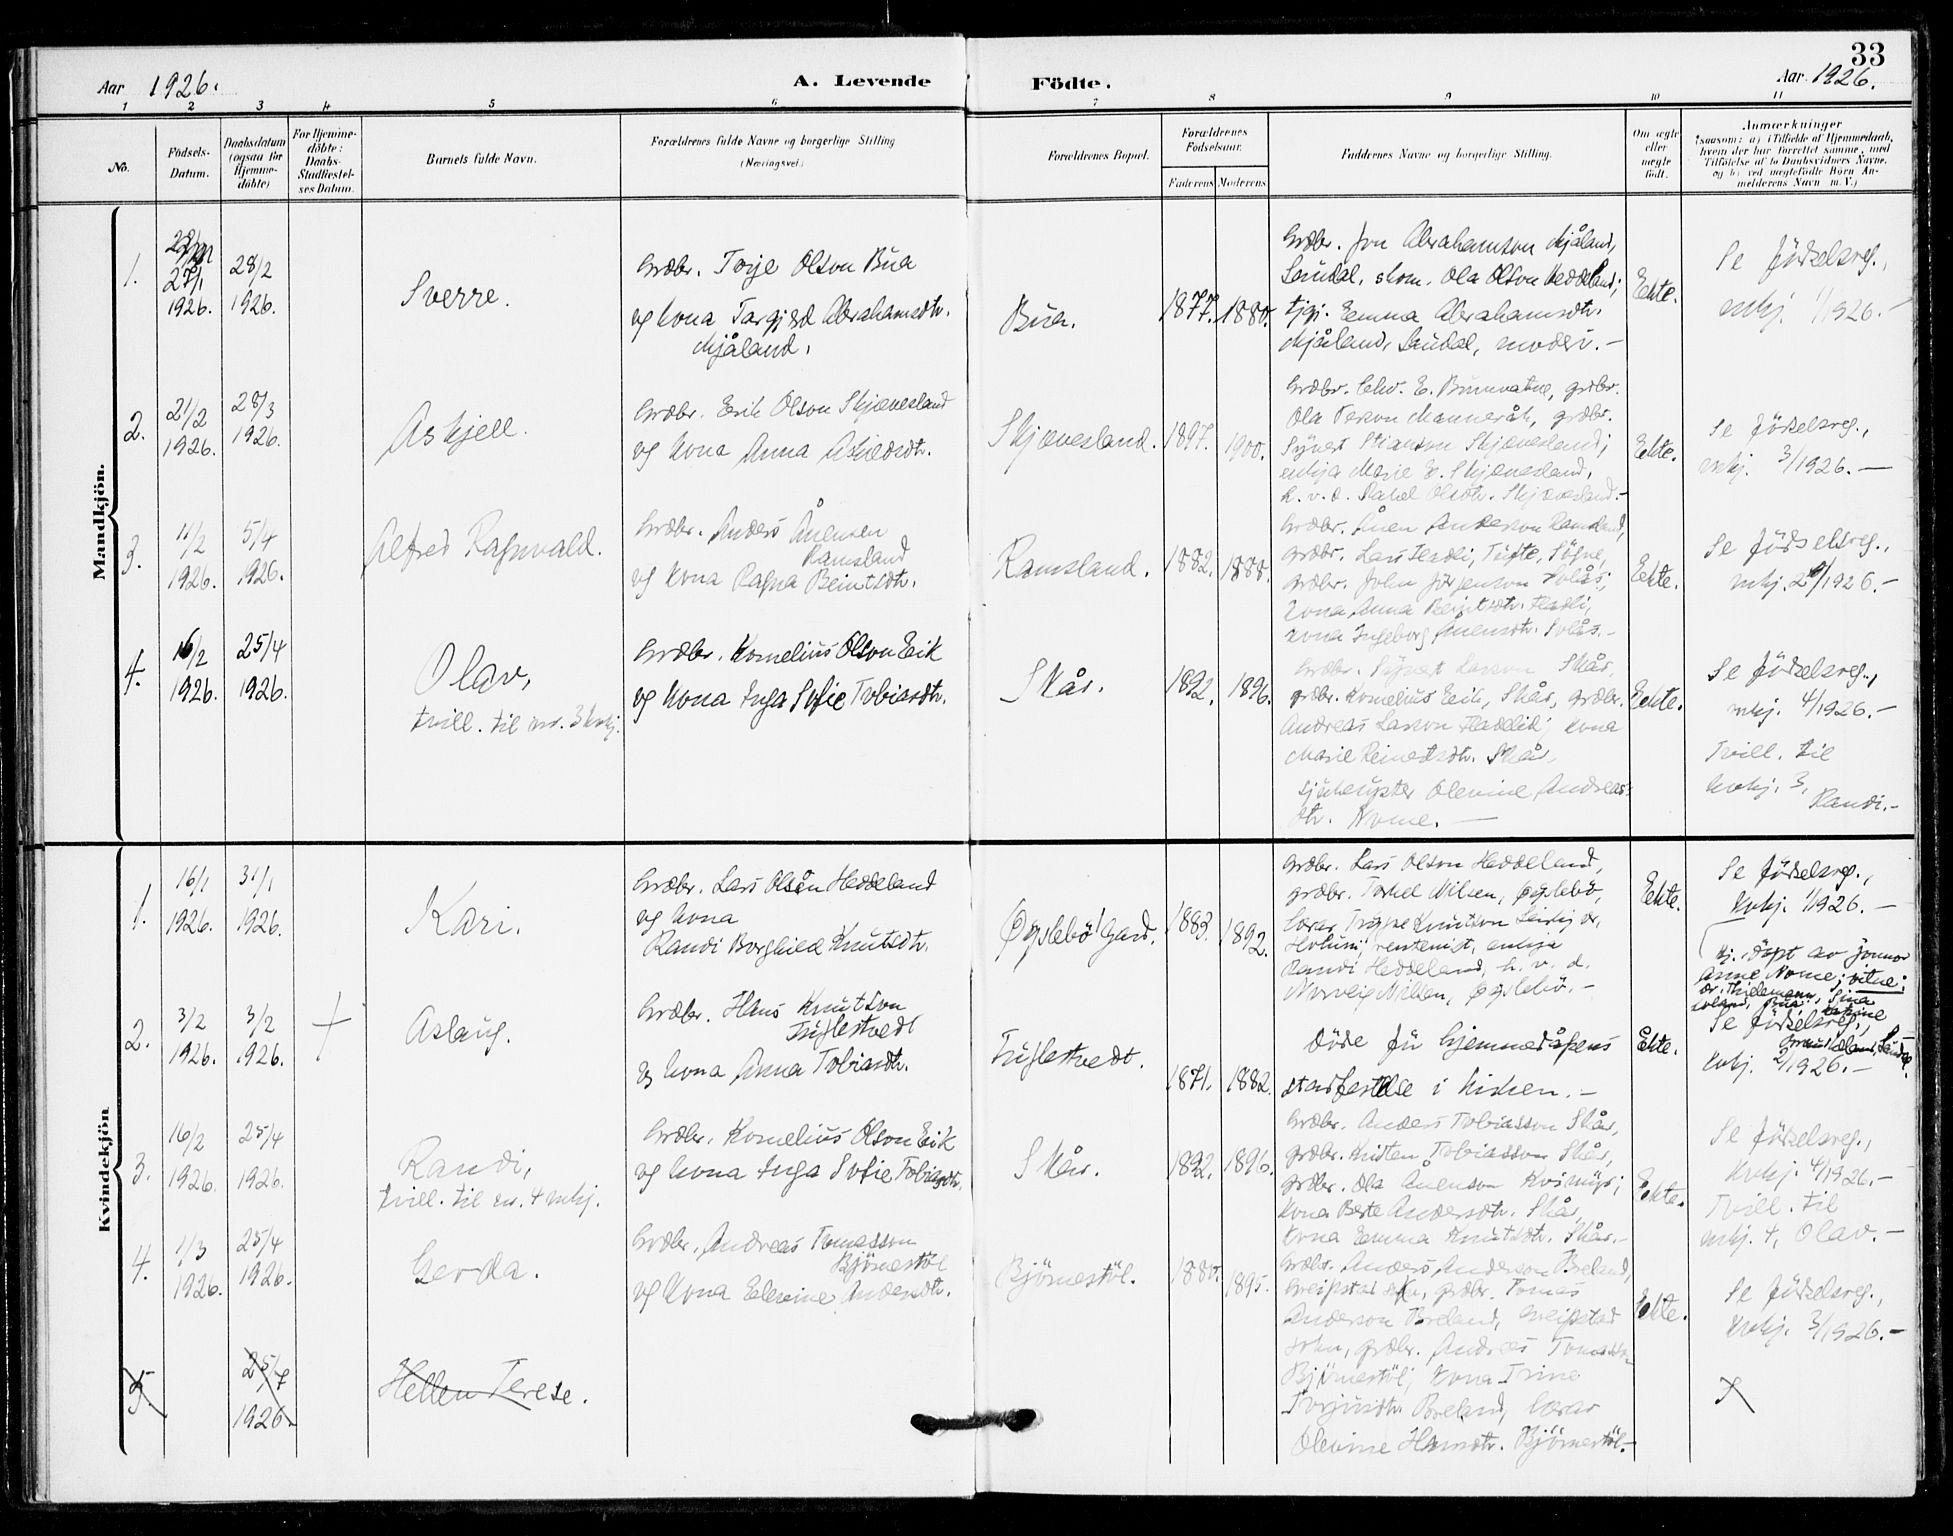 33
Aar 1926.
A. Levende
Födte.
Aar 1926.
1 2 3 4 5 6 7 8 9 10 11
No.
Födsels-
Datum.
Daabsdatum
(ogsaa for
Hjemme-
döbte)
For Hjemme-
döbte:
Daabs-
Stadfæstel-
ses Datum.
Barnets fulde Navn.
Forældrenes fulde Navne og borgerlige Stilling
(Næringsvei.)
Forældrenes Bopæl.
Forældrenes
Födselsaar.
Faderens Moderens
Faddernes Navne og borgerlige Stilling.
Om ægte
eller
uægte
födt.
Anmærkninger
(saasom: a) i Tilfælde af Hjemmedaab,
hvem der har forrettet samme, med
Tilföielse af to Daabsvidners Navne,
og b) ved uægtefödte Börn An-
melderens Navn m. V.)
Mandkjön.
1.
27/1
1926.
28/2
1926.
Sverre.
Gardbr. Torje Olson Bua
og kona Targjerd Abrahamsdtr.
Mjåland.
Bua.
1877. 1880.
Gardbr. Jon Abrahamson Mjåland,
Laudal, skom. Ola Olson Heddeland;
tjgj. Emma Abrahamsdtr.
Mjåland, Laudal, moderi. -
Ekte.
Se födselsreg.,
mkj. 1/1926. -
2.
21/2
1926.
28/3
1926.
Askjell.
Gardbr. Erik Olson Skjævesland
og kona Anna Askiedsdtr.
Skjævesland.
1897. 1900.
Gardbr. Chr. E. Brunvatne, gardbr.
Ola Terson Manneråk, gardbr.
Syvert Stianson Skjævesland;
enkja Marie E. Skjævesland,
h. v. d. Rakel Olsdtr. Skjævesland. -
Ekte.
Se födselsreg.,
mkj. 3/1926. -
3.
11/2
1926.
5/4
1926.
Alfred Ragnvald.
Gardbr. Anders Ånensen
Ramsland
og kona Ragna Beintsdtr.
Ramsland.
1882. 1888.
Gardbr. Ånen Anderson Ramsland,
gardbr. Lars Haddli, Tufte, Søgne,
gardbr. John Jörgenson Solås;
kona Anna Beintsdtr. Haddli,
kona Ingeborg Ånensdtr. Solås. -
Ekte.
Se födselsreg.,
mkj. 2/1926. -
4.
16/2
1926.
25/4
1926.
Olav,
tvill. til nr. 3 kvkj.
Gardbr. Kornelius Olson Eik
og kona Inga Sofie Tobiasdtr.
Skår.
1892. 1896.
Gardbr. Syvert Larson Skår,
gardbr. Kornelius Eik, Skår, gardbr.
Andreas Larson Haddeli; kona
Marie Reinertsdtr. Skår,
sjukesyster Olevine Andreas-
dtr. Nome. -
Ekte.
Se födselsreg.,
mkj. 4/1926. -
Tvill. til
kvkj. 3,
Randi. -
Kvindekjön
1.
16/1
1926.
31/1
1926.
Kari.
Gardbr. Lars Olson Heddeland
og kona
Randi Borghild Knutsdtr.
Øyslebö Gard.
1883. 1892.
Gardbr. Lars Olson Heddeland,
gardbr. Torkel Nilsen, Øyslebö,
lærar Trygve Knutson
Holum; rentenist, enkja
Randi Heddeland, h. v. d.
Norveig Nilsen, Øyslebö. -
Ekte.
Se födselsreg.,
kvkj. 1/1926. -
2.
3/2
1926.
3/2
1926.
+
Aslaug.
Gardbr. Hans Knutson
Fuglestvedt
og kona Anna Tobiasdtr.
Fuglestvedt.
1871. 1882.
Döde fü hjemmedåpens
stadfestelse i kirken. -
Ekte.
Hj. döpt av jonmor
Anne Nome; vitne:
Se födselsreg.,
kvkj. 2/1926. -
3.
16/2
1926.
25/4
1926.
Randi,
tvill. til nr. 4 mkj.
Gardbr. Kornelius Olson Eik
og kona Inga Sofie Tobiasdtr.
Skår.
1892. 1896.
Gardbr. Anders Tobiasson Skår,
gardbr. Kristen Tobiasson Skår,
gardbr. Ola Ånenson Kosmyr;
kona Berte Andersdtr. Skår,
kona Emma Knutsdtr. Skår. -
Ekte.
Se födselsreg.,
kvkj. 4/1926. -
Tvill. til
mkj. 4, Olav. -
4.
1/3
1926.
25/4
1926.
Gerda.
Gardbr. Andreas Tomasson
Björnestöl
og kona Elevine Andersdtr.
Björnestöl.
1880. 1895.
Gardbr. Anders Anderson Breland,
Greipstad sokn, gardbr. Tomas
Anderson Breland, Greipstad
sokn, gardbr. Andreas Tomasson
Björnestöl; kona Trine
Torjusdtr. Breland, lærar
Olevine Hansdtr. Björnestöl. -
Ekte.
Se födselsreg.,
kvkj. 3/1926. -
5.
25/7
1926.
Hellen Terese.